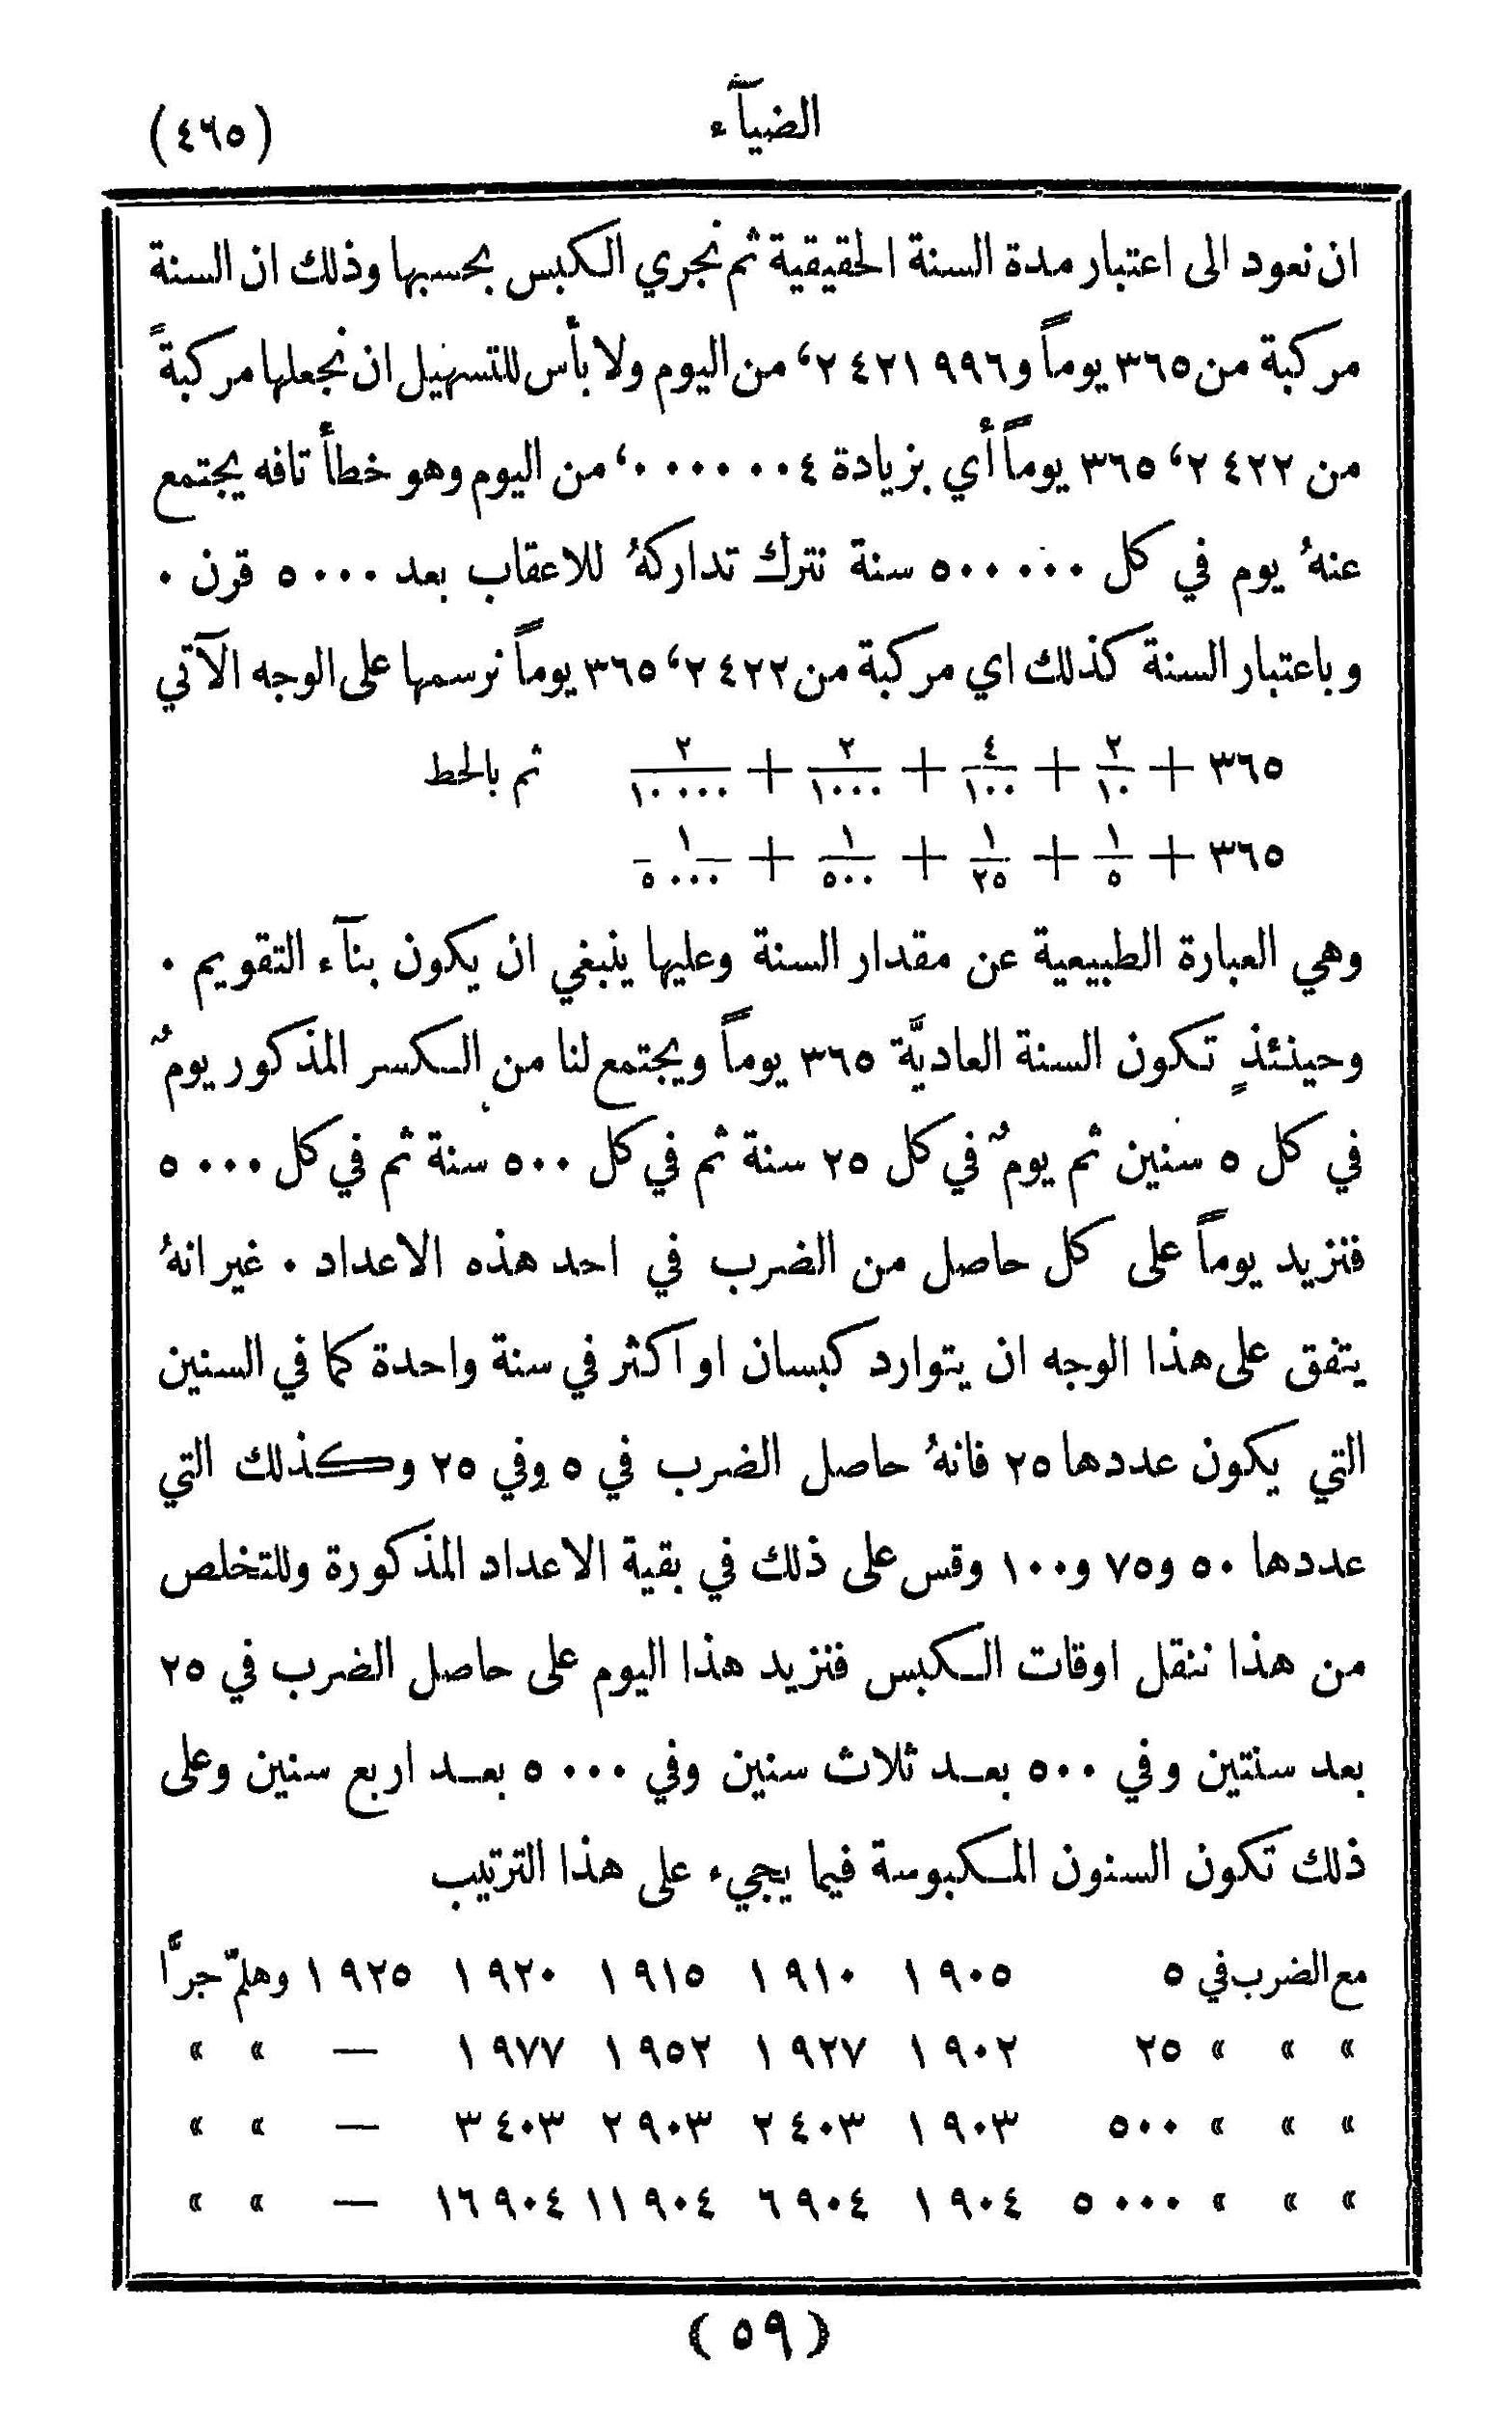 الضيآء
(٤٦٥)
ان نعود الى اعتبار مدة السنة الحقيقية ثم نجري الكبس بحسبها وذلك ان السنة
مركبة من ٣٦٥ يوماً و٩٩٦ ٢٤٢١ʻ من اليوم ولا بأس للتسهيل ان نجعلها مركبةً
من ٢٤٢٢ʻ٣٦٥ يوماً أي بزيادة ٠٠٠٠٠٠٤ʻ من اليوم وهو خطأ تافه يجتمع
عنهُ يوم في كل ٥٠٠٠٠٠ سنة نترك تداركهُ للاعقاب بعد ٥٠٠٠ قرن .
وباعتبار السنة كذلك اي مركبة من ٢٤٢٢ʻ٣٦٥ يوماً نرسمها على الوجه الآتي
٣٦٥ + ٢/١٠ + ٤/١٠٠ + ٢/١٠٠٠ + ٢/١٠٠٠٠ ثم بالحط
٣٦٥ + ١/٥ + ١/٢٥ + ١/٥٠٠ + ١/٥٠٠٠
وهي العبارة الطبيعية عن مقدار السنة وعليها ينبغي ان يكون بنآء التقويم .
وحينئذٍ تكون السنة العاديَّة ٣٦٥ يوماً ويجتمع لنا من الكسر المذكور يومٌ
في كل ٥ سنين ثم يومٌ في كل ٢٥ سنة ثم في كل ٥٠٠ سنة ثم في كل ٥٠٠٠
فنزيد يوماً على كل حاصل من الضرب في احد هذه الاعداد . غير انهُ
يتفق على هذا الوجه ان يتوارد كبسان او اكثر في سنة واحدة كما في السنين
التي يكون عددها ٢٥ فانهُ حاصل الضرب في ٥ وفي ٢٥ وكذلك التي
عددها ٥٠ و٧٥ و١٠٠ وقس على ذلك في بقية الاعداد المذكورة وللتخلص
من هذا ننقل اوقات الكبس فنزيد هذا اليوم على حاصل الضرب في ٢٥
بعد سنتين وفي ٥٠٠ بعد ثلاث سنين وفي ٥٠٠٠ بعد اربع سنين وعلى
ذلك تكون السنون المكبوسة فيما يجيء على هذا الترتيب
مع الضرب في ٥ ١٩٠٥ ١٩١٠ ١٩١٥ ١٩٢٠ ١٩٢٥ وهلمّ جرًّا
» » » ٢٥ ١٩٠٢ ١٩٢٧ ١٩٥٢ ١٩٧٧ — » »
» » » ٥٠٠ ١٩٠٣ ٢٤٠٣ ٢٩٠٣ ٣٤٠٣ — » »
» » » ٥٠٠٠ ١٩٠٤ ٦٩٠٤ ١١٩٠٤ ١٦٩٠٤ — » »
(٥٩)